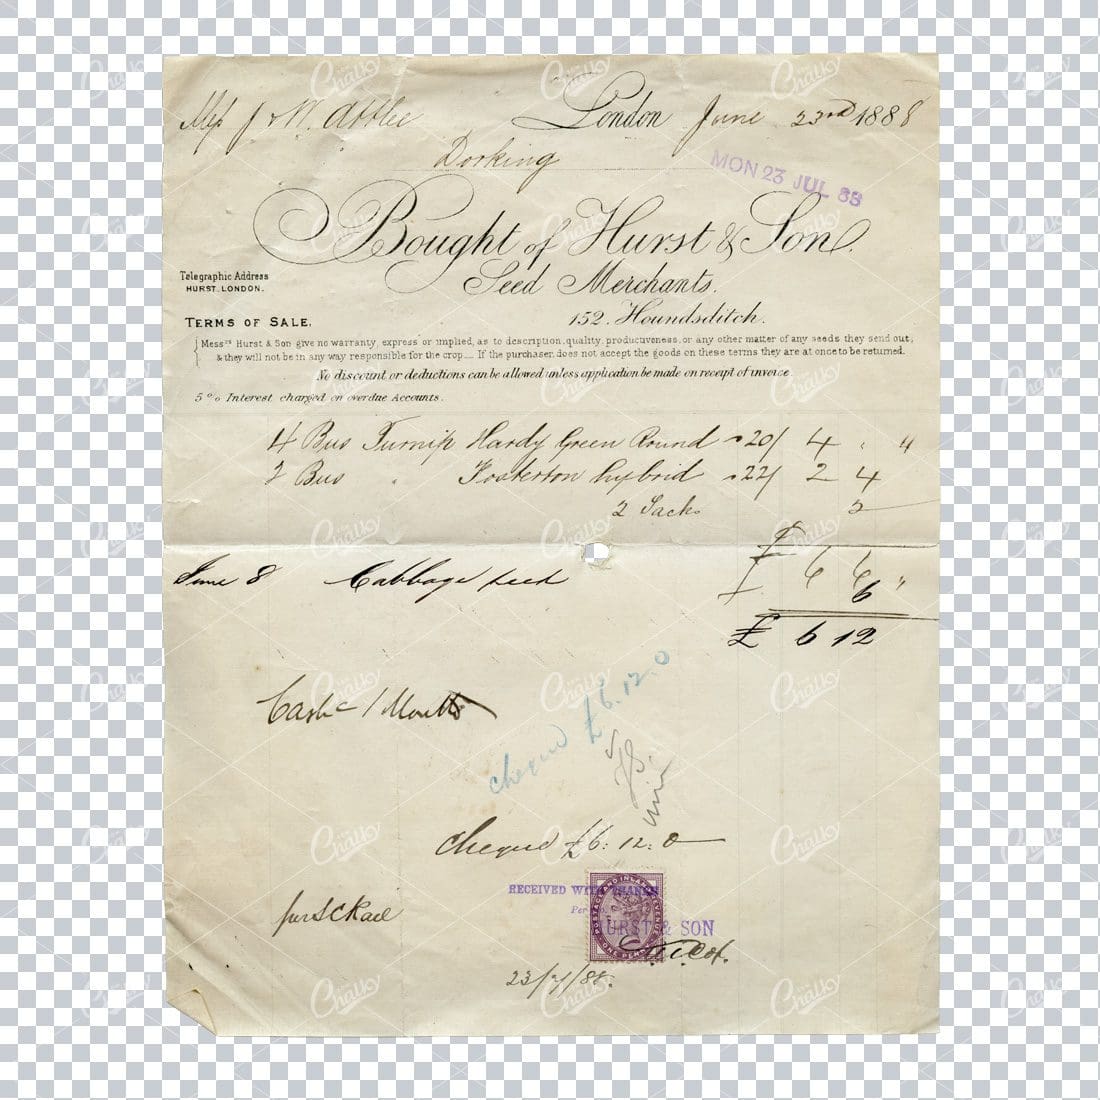 Messrs J & W. Attlee London June 23rd 1888
Dorking
MON 23 JUL 88
Bought of Hurst & Son.
Seed Merchants.
Telegraphic Address
HURST. LONDON.
152. Houndsditch.
TERMS OF SALE.
Messrs Hurst & Son give no warranty, express or implied, as to description, quality, productiveness, or any other matter of any seeds they send out;
& they will not be in any way responsible for the crop.__ If the purchaser does not accept the goods on these terms they are at once to be returned.
No discount or deductions can be allowed unless application be made on receipt of invoice.
5% Interest charged on overdue Accounts.
4 Bus Turnip Hardy Green Round 20/ 4 " "
2 Bus " Fosterton hybrid 22/ 2 4
2 Sacks 2
£ 6 6 "
June 8 Cabbage seed 6
£ 6 12
Cash 1 Month
cheque £6.12.0
cheque £6:12:0
RECEIVED WITH THANKS
Per
HURST & SON
POSTAGE AND INLAND REVENUE
ONE PENNY
23/7/88.
The Chalky